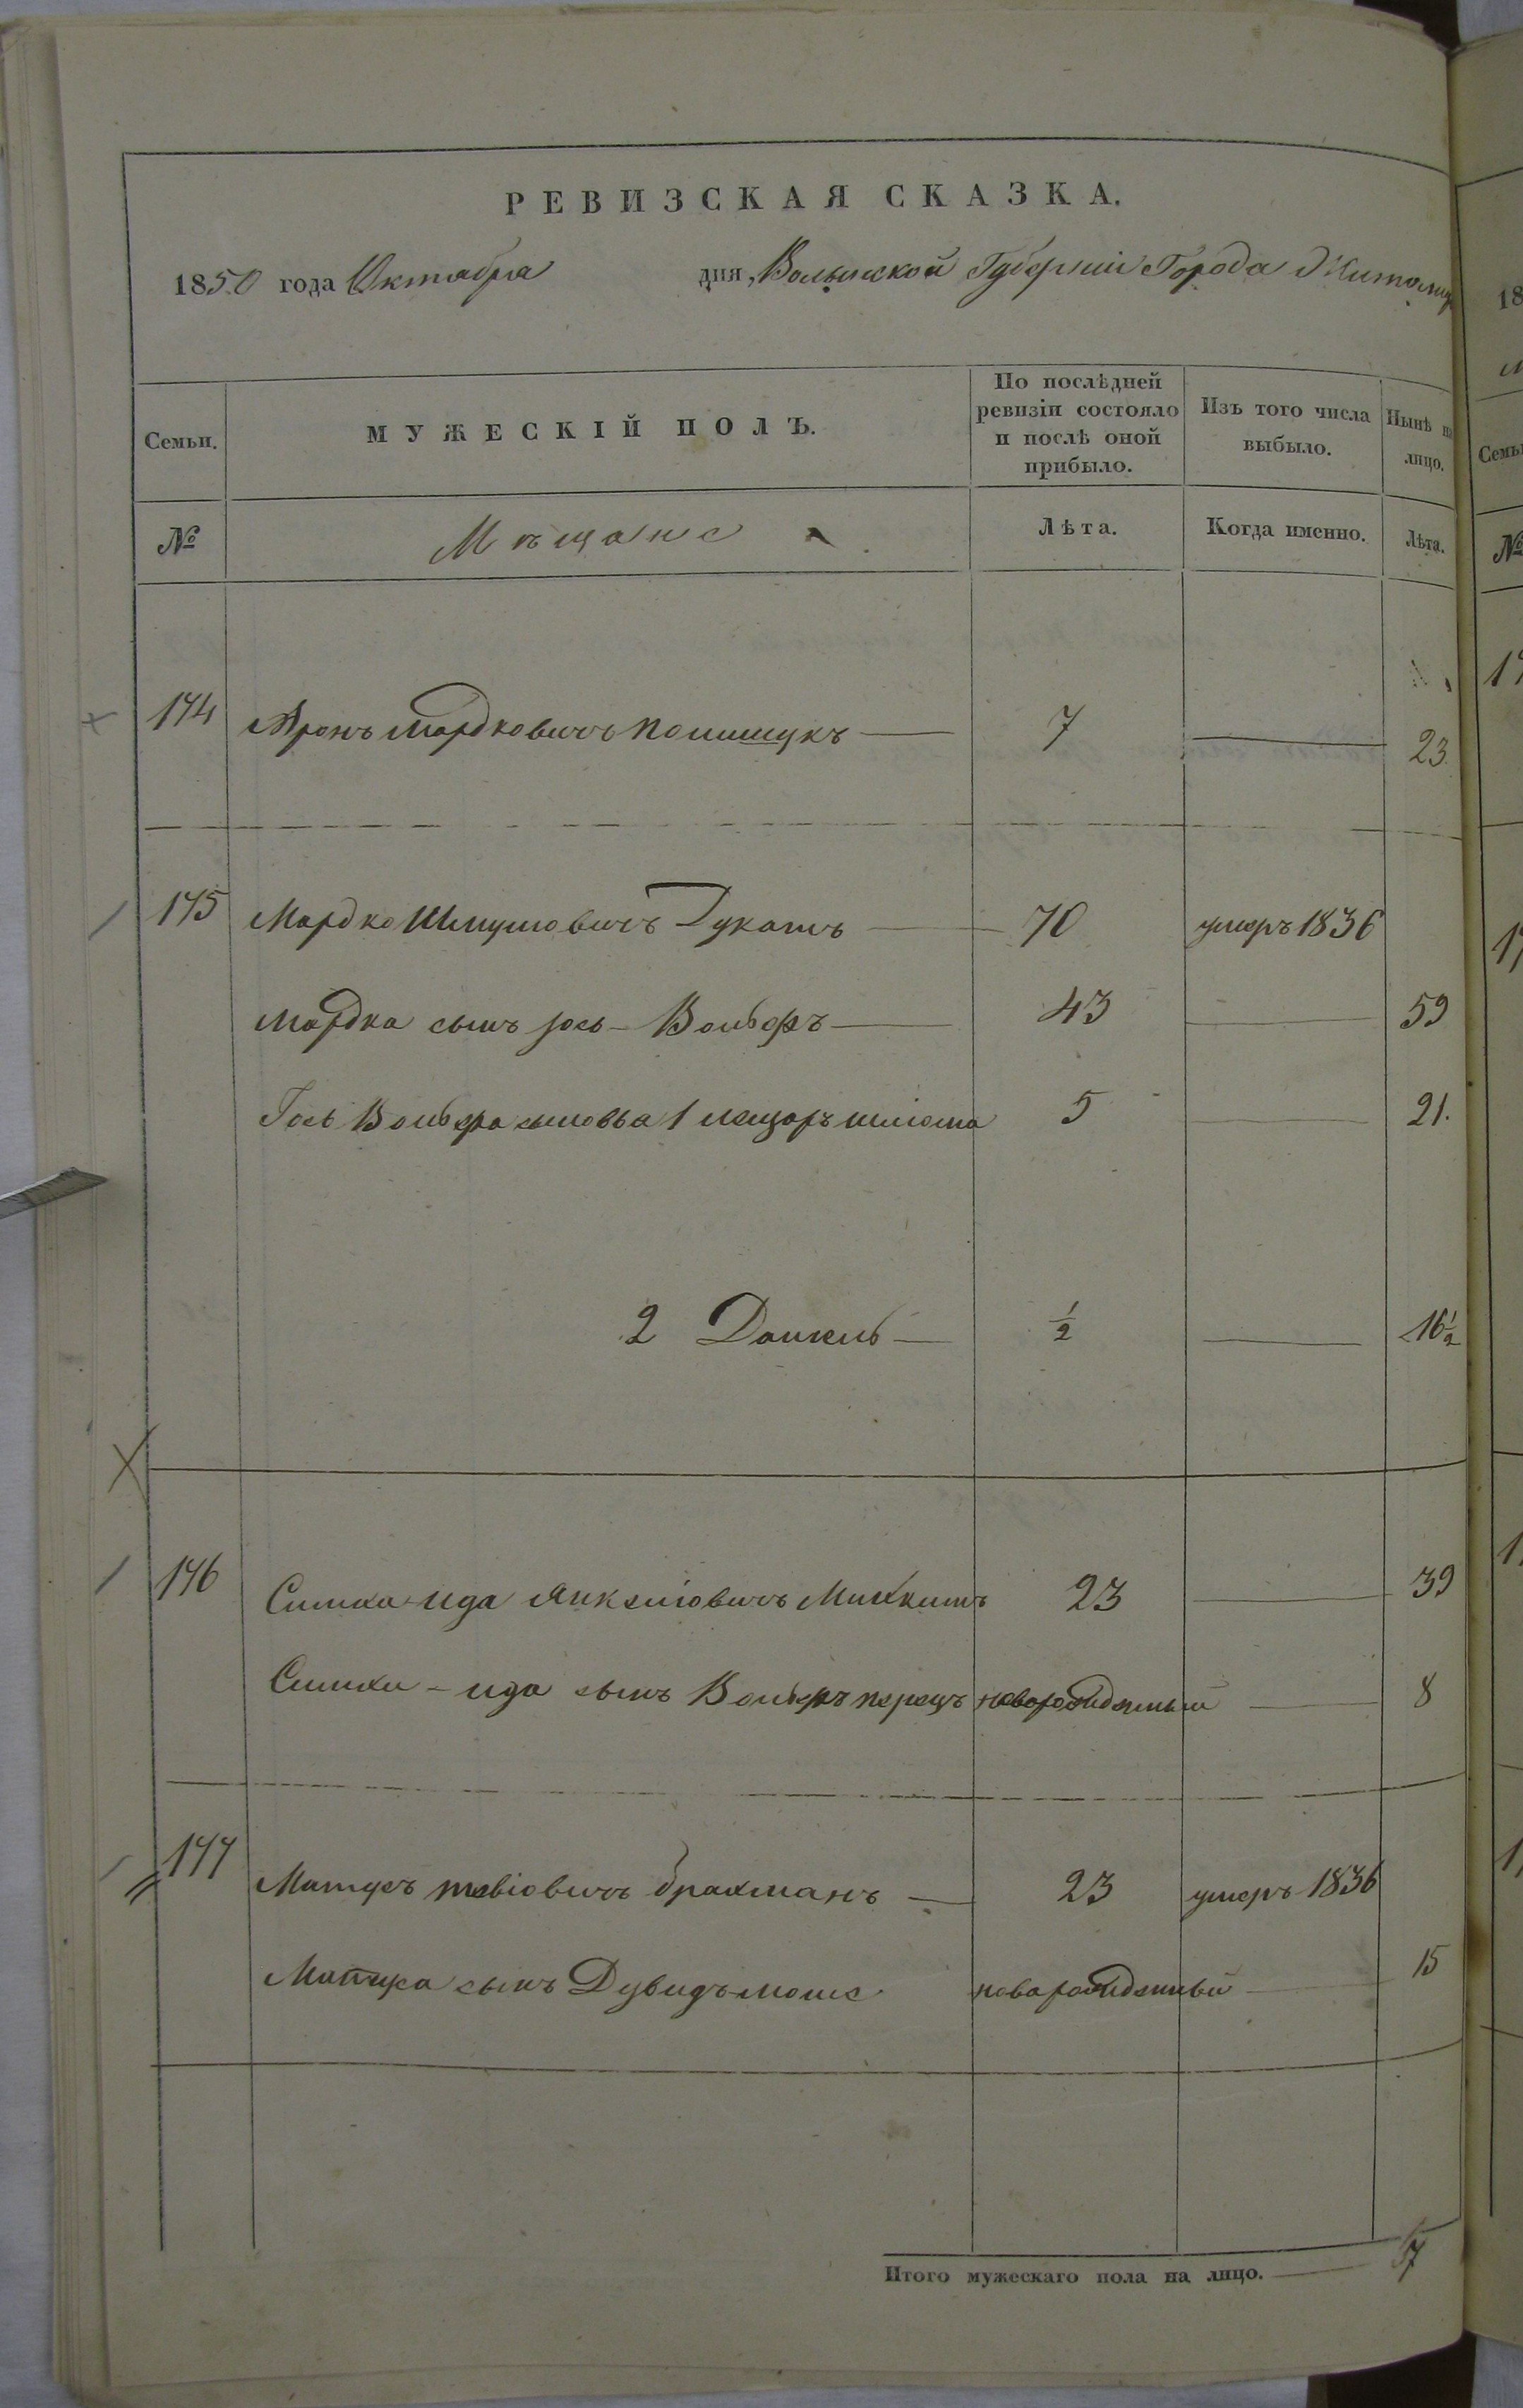 РЕВИЗСКАЯ СКАЗКА.
1850 года Октабра дня, Волынской Губерніи Города Житомир
Семьи. МУЖЕСКІЙ ПОЛЪ. По послѣдней ревизіи состояло и послѣ оной прибыло. Изъ того числа выбыло. Нынѣ на лицо.
№ Мѣщане Лѣта. Когда именно. Лѣта.
174 Аронъ Мордковичъ 7 23
175 Мордко Шмулювичъ Дукатъ 70 умеръ 1836
Мордка сынъ Іось-Вольфъ 43 59
Іось Вольфа сыновья 1 Лейзоръ 5 21.
2 Даніель ½ 16½
176 Симха-Ида Янкеліовичъ 23 39
Симхи-Ида сынъ Вольфъ Перецъ новорожденный 8
177 Матусъ Тевіовичъ Брахманъ 23 умеръ 1836
Матуса сынъ Дувидъ-Моше новарожденный 15
Итого мужескаго пола на лицо. 7